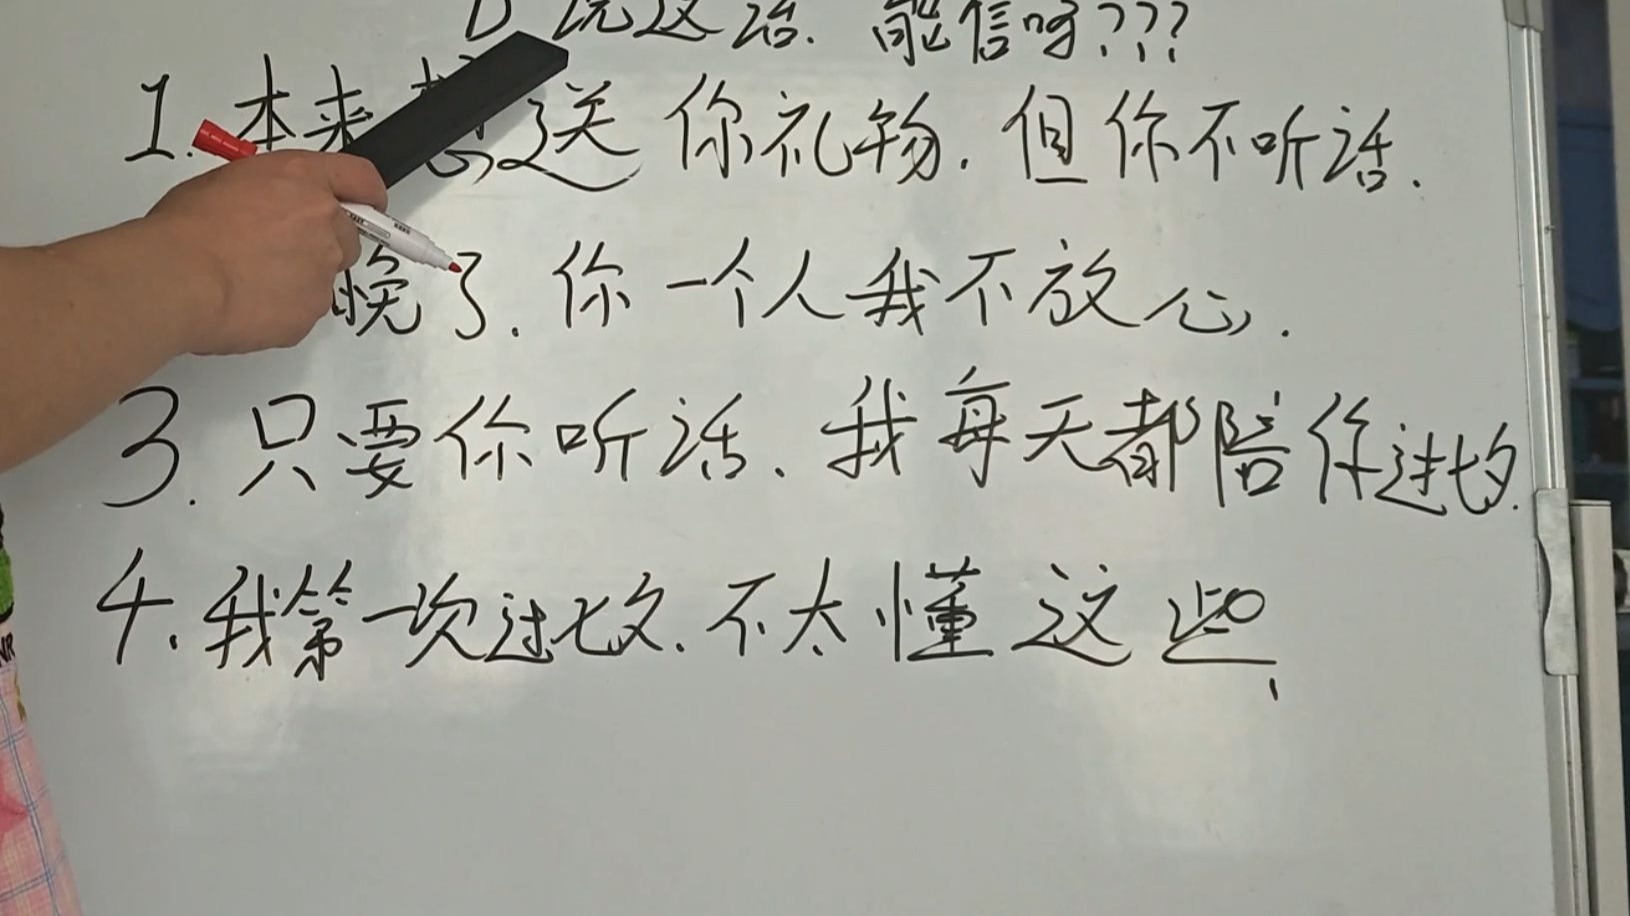 说这话.能信吗???
1.本来想送你礼物.但你不听话.
晚了.你一个人我不放心.
3.只要你听话.我每天都陪你过七夕.
4.我第一次过七夕.不太懂这些,